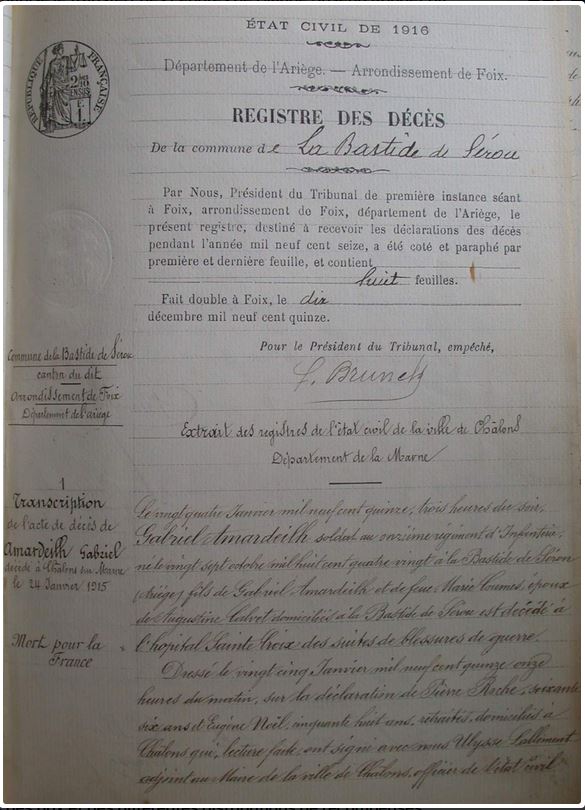 ÉTAT CIVIL DE 1916
Département de l'Ariège. — Arrondissement de Foix.
REGISTRE DES DÉCÈS
De la commune de La Bastide de Sérou
Par Nous, Président du Tribunal de première instance séant
à Foix, arrondissement de Foix, département de l'Ariège, le
présent registre, destiné à recevoir les déclarations des décès
pendant l'année mil neuf cent seize, a été coté et paraphé par
première et dernière feuille, et contient
huit feuilles.
Fait double à Foix, le dix
décembre mil neuf cent quinze.
Pour le Président du Tribunal, empêché,
RÉPUBLIQUE FRANÇAISE
Commune de la Bastide de Sérou
canton du dit
Arrondissement de Foix
Département de l'ariège
Extrait des registres de l'état civil de la ville de Châlons
Département de la Marne
1
Transcription
de l'acte de décès de
Amardeilh Gabriel
décédé à Châlons sur Marne
le 24 Janvier 1915
Mort pour la
France
Le vingt quatre Janvier mil neuf cent quinze, trois heures du soir,
Gabriel Amardeilh soldat au onzième régiment d'Infanterie,
né le vingt sept octobre mil huit cent quatre vingt à la Bastide de Sérou
(Ariège) fils de Gabriel Amardeilh et de feue Marie Coumes, époux
de Augustine Calvet domiciliés à la Bastide de Sérou est décédé à
l'hopital Sainte Croix des suites de blessures de guerre.
Dressé le vingt cinq Janvier mil neuf cent quinze onze
heures du matin, sur la déclaration de Pierre Roche, soixante
six ans et Eugène Noël, cinquante huit ans, retraités, domiciliés à
Châlons qui, lecture faite, ont signé avec nous Ulysse Lallement
adjoint au Maire de la ville de Châlons, officier de l'état civil